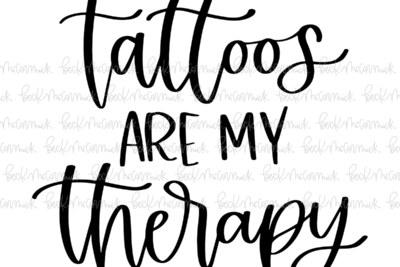 tattoos
ARE MY
therapy